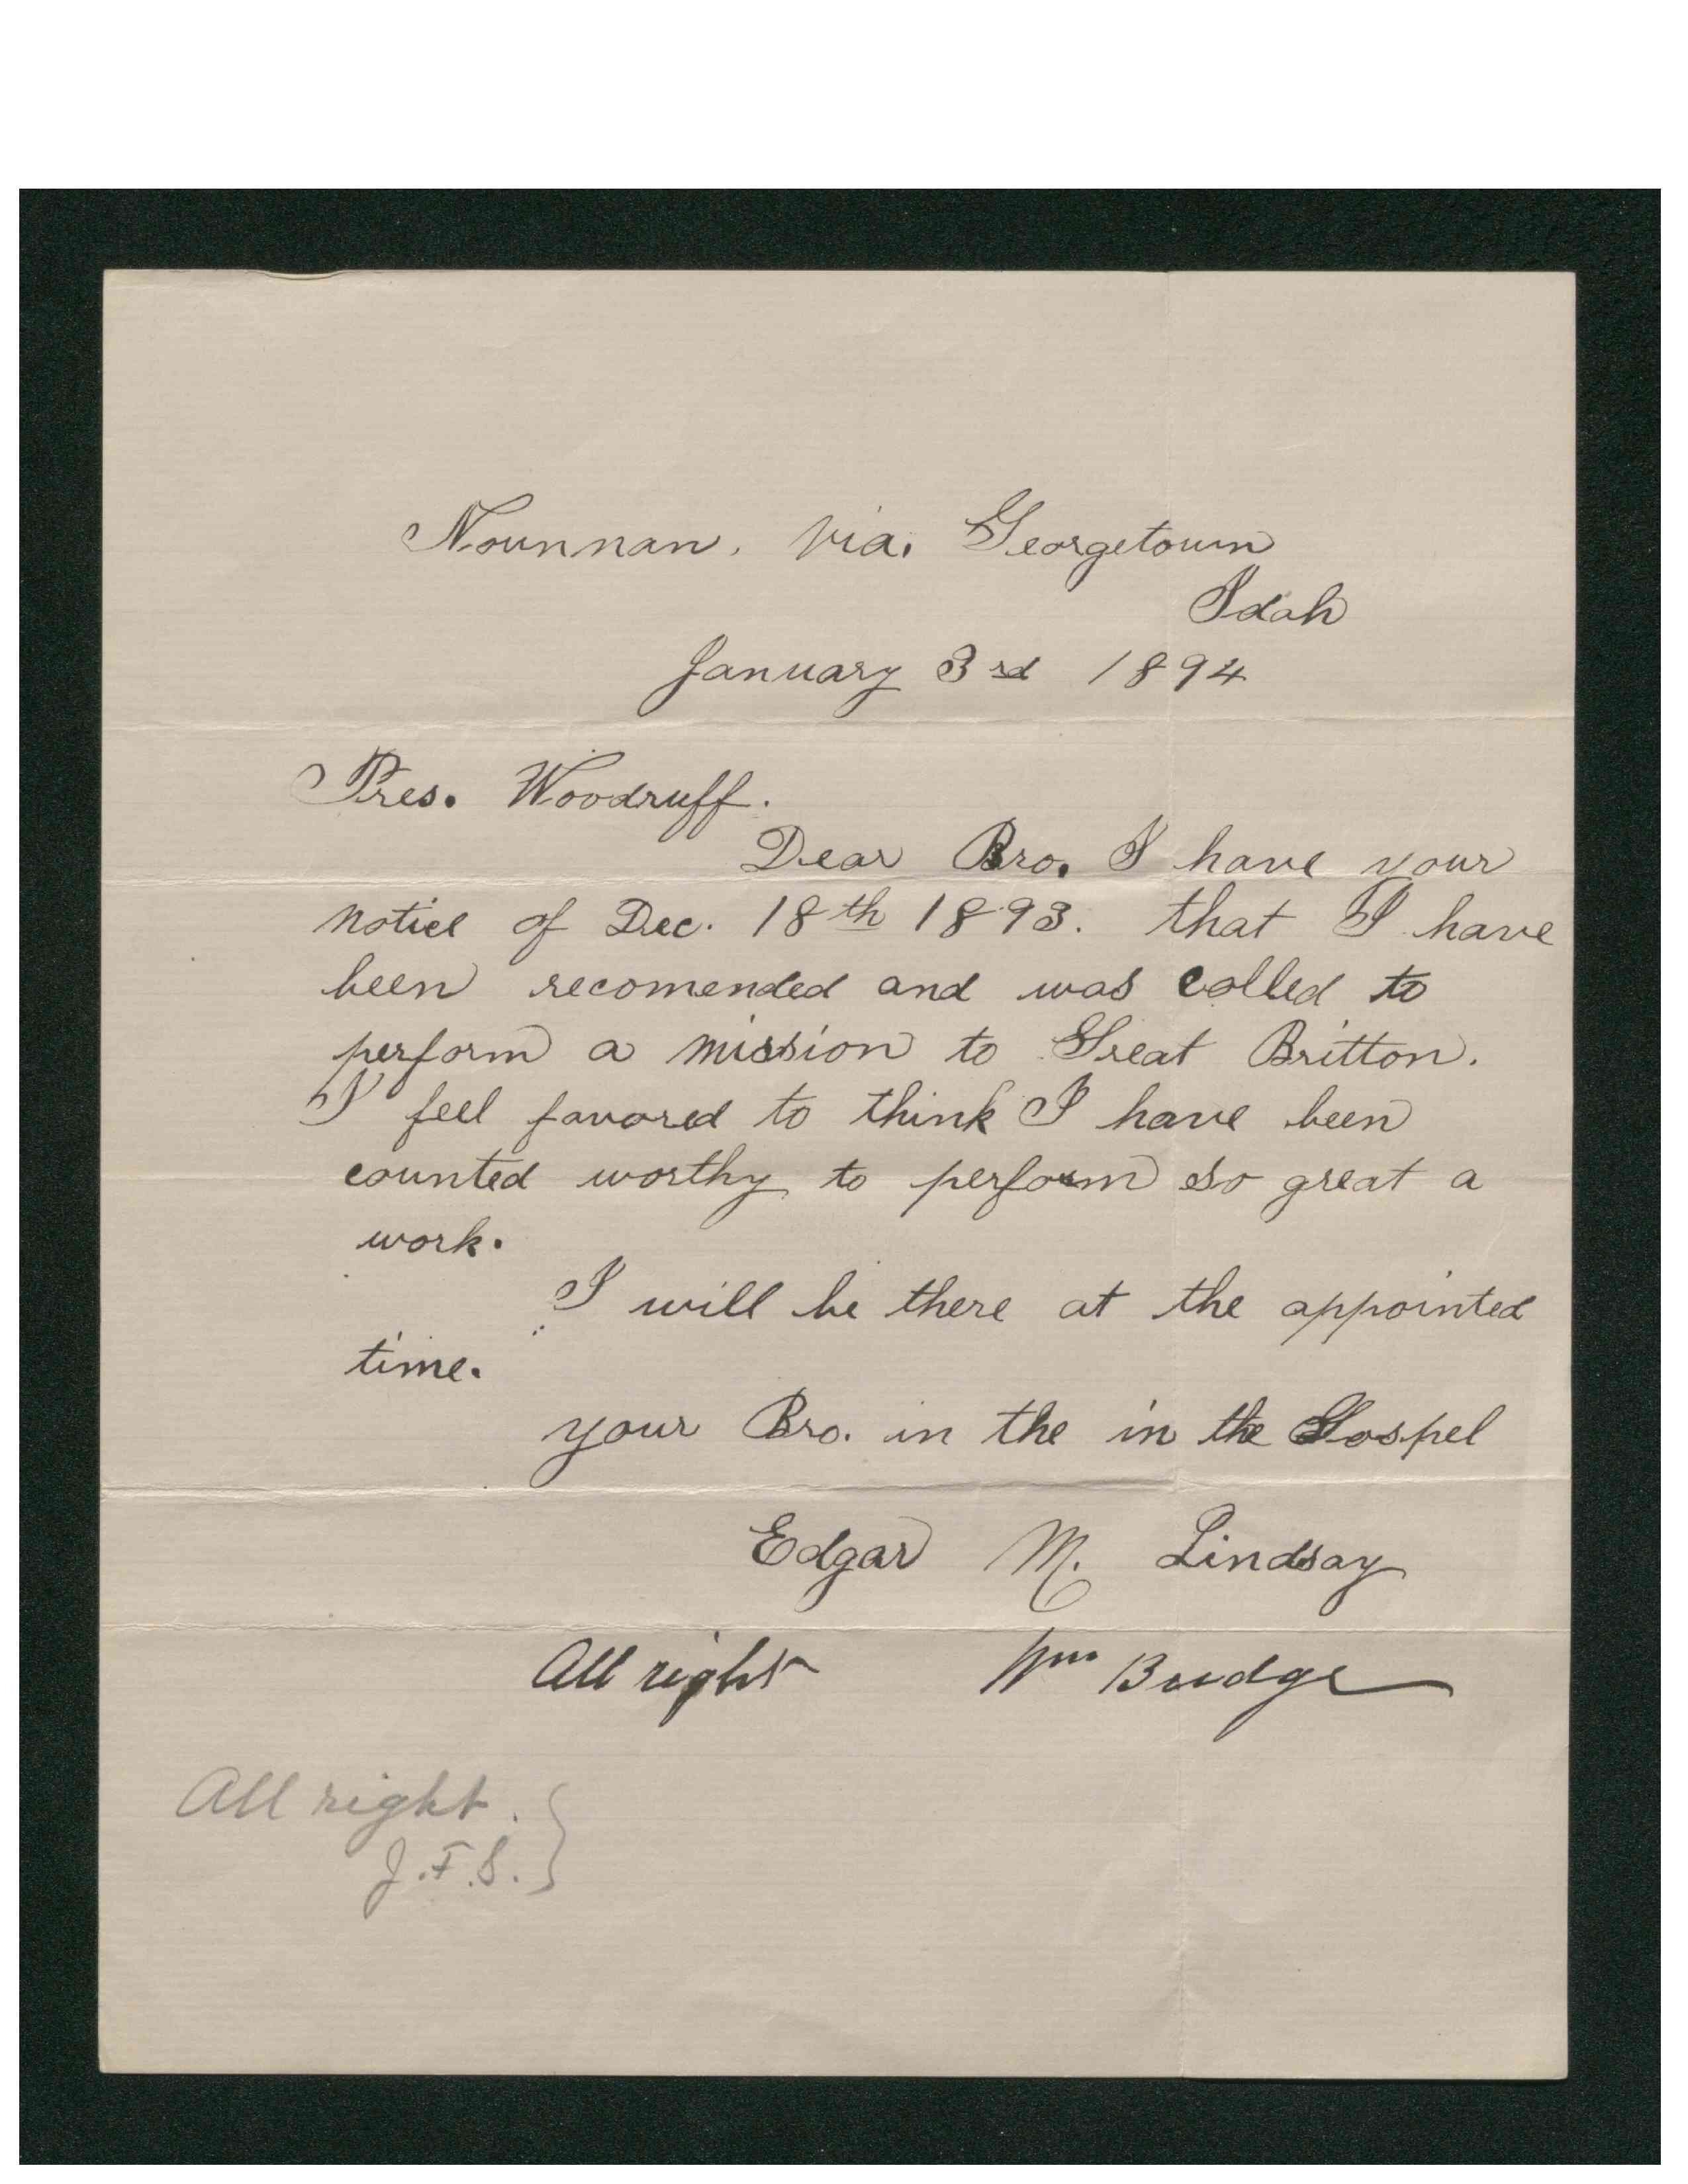 Nounnan, via, Georgetown
Idah
January 3rd 1894
Pres. Woodruff.
Dear Bro. I have your
notice of Dec. 18th 1893. that I have
been recomended and was called to
perform a mission to Great Britton.
I feel favored to think I have been
counted worthy to perform so great a
work.
I will be there at the appointed
time.
your Bro. in the in the Gospel
Edgar M. Lindsay
All right Wm Budge
All right.
J.F.S.